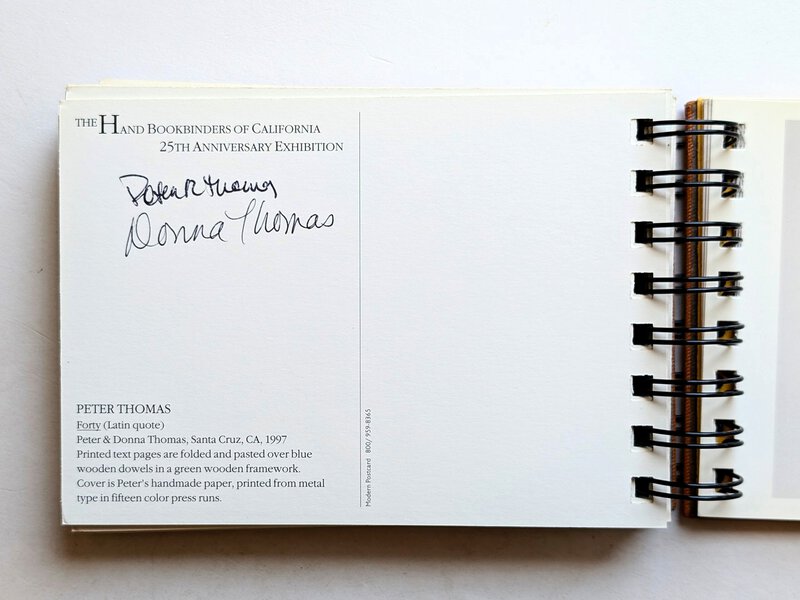 THE HAND BOOKBINDERS OF CALIFORNIA
25TH ANNIVERSARY EXHIBITION
Peter R Thomas
Donna Thomas
PETER THOMAS
Forty (Latin quote)
Peter & Donna Thomas, Santa Cruz, CA, 1997
Printed text pages are folded and pasted over blue
wooden dowels in a green wooden framework.
Cover is Peter's handmade paper, printed from metal
type in fifteen color press runs.
Modern Postcard 800/959-8365